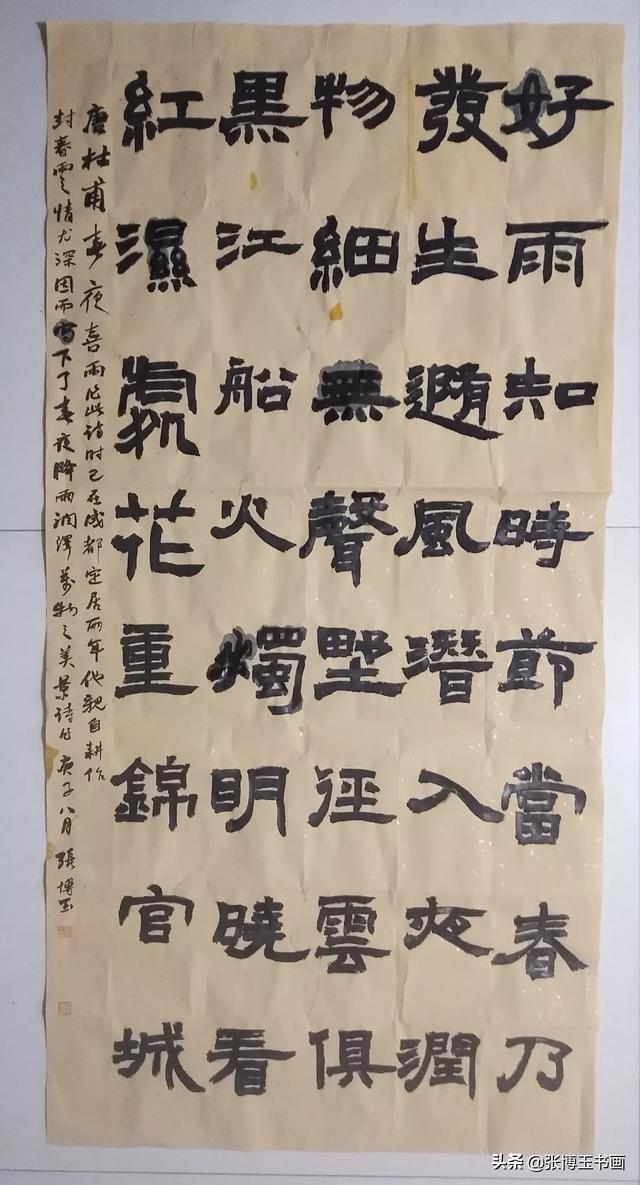 好雨知時節當春乃
發生隨風潛入夜潤
物細無聲野徑雲俱
黑江船火燭明曉看
紅濕處花重錦官城
唐杜甫春夜喜雨作此诗时已在成都定居两年他親自耕作
對春雨之情尤深因而写下了春夜降雨潤澤萬物之美景诗作 庚子八月 張博玉
头条 @张博玉书画